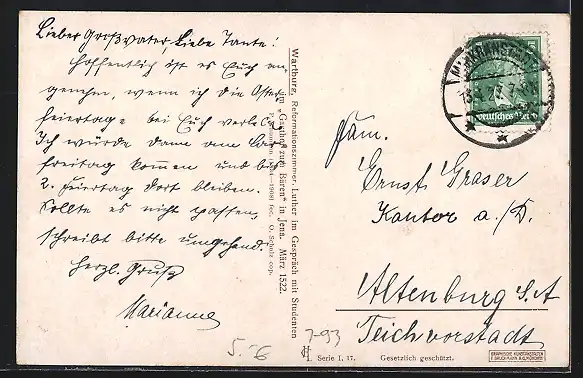 Lieber Großvater, Liebe Tante!
Hoffentlich ist es Euch an-
genehm, wenn ich die Oster
feiertage bei Euch verlebe.
Ich würde dann am Kar
freitag kommen und bis
2. Feiertag dort bleiben.
Sollte es nicht passen,
schreibt bitte umgehend.
Herzl. Gruß
Marianne
Wartburg, Reformationszimmer. Luther im Gespräch mit Studenten
im „Gasthof zum Bären“ in Jena. März 1522.
fec. O. Schulz cop.
Deutsches Reich
Fam.
Ernst Graser
Kantor a/D.
Altenburg S.A
Teichvorstadt
7-93
Serie I, 17. Gesetzlich geschützt.
GRAPHISCHE KUNSTANSTALTEN
F. BRUCKMANN A.G. MÜNCHEN